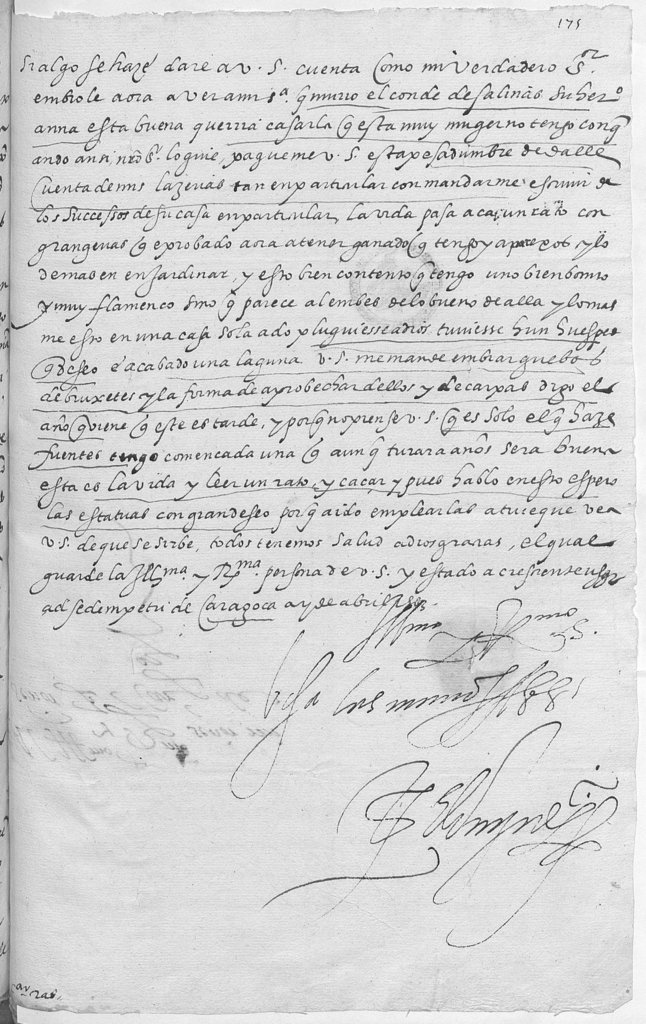 175
si algo se haze dare a v. s. cuenta Como mi verdadero S.or
embiole aora a ver a mi s.a q murio el conde de salinas su her.o
anna esta buena querria casarla q esta muy muger no tengo con q
ando loguie, pagueme v. s. esta pesadumbre de dalle
Cuenta de mis lazerias tan en particular con mandarme escrivir de
los successos de su casa en particular, la vida pasa aca un rato con
grangerias q e probado aora a tener ganado q tengo y aparexos y lo
demas en en Jardinar, y esto bien contento q tengo uno bien bonito
y muy flamenco sino q parece al embes de lo bueno de alla y lo mas
me esto en una casa sola ado pluguiesse a dios tuviesse hun huesped
q deseo e acabado una laguna v. s. me mande embiar guebos
de bruxetes y la forma de aprobechar dellos y de carpas digo el
año q viene q este es tarde, y porq no piense v. s. q es solo el q haze
fuentes tengo comencada una q aunq turara años sera buena
esta es la vida y leer un rato, y caçar, y pues hablo en esto espero
las estatuas con gran deseo porq a ido emplearlas a tiempo que vea
v. s. de que se sirbe, todos tenemos salud a dios gracias, el qual
guarde la Ill.ma y R.ma persona de v. s. y estado acresciente
de Caragoca a de abril
Ill.mo y R.mo S.
b. la las manos